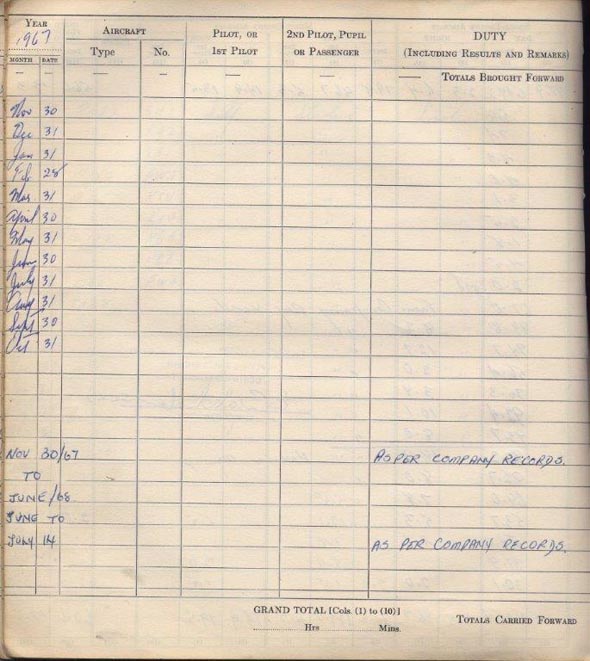 YEAR
1967
AIRCRAFT
PILOT, OR
1ST PILOT
2ND PILOT, PUPIL
OR PASSENGER
DUTY
(INCLUDING RESULTS AND REMARKS)
MONTH DATE Type No.
— — — — — — — TOTALS BROUGHT FORWARD
Nov 30
Dec 31
Jan 31
Feb 28
Mar 31
April 30
May 31
June 30
July 31
Aug 31
Sept 30
Oct 31
NOV 30/67 AS PER COMPANY RECORDS.
TO
JUNE/68
JUNE TO
JULY 14 AS PER COMPANY RECORDS.
GRAND TOTAL [Cols. (1) to (10)]
Hrs Mins.
TOTALS CARRIED FORWARD